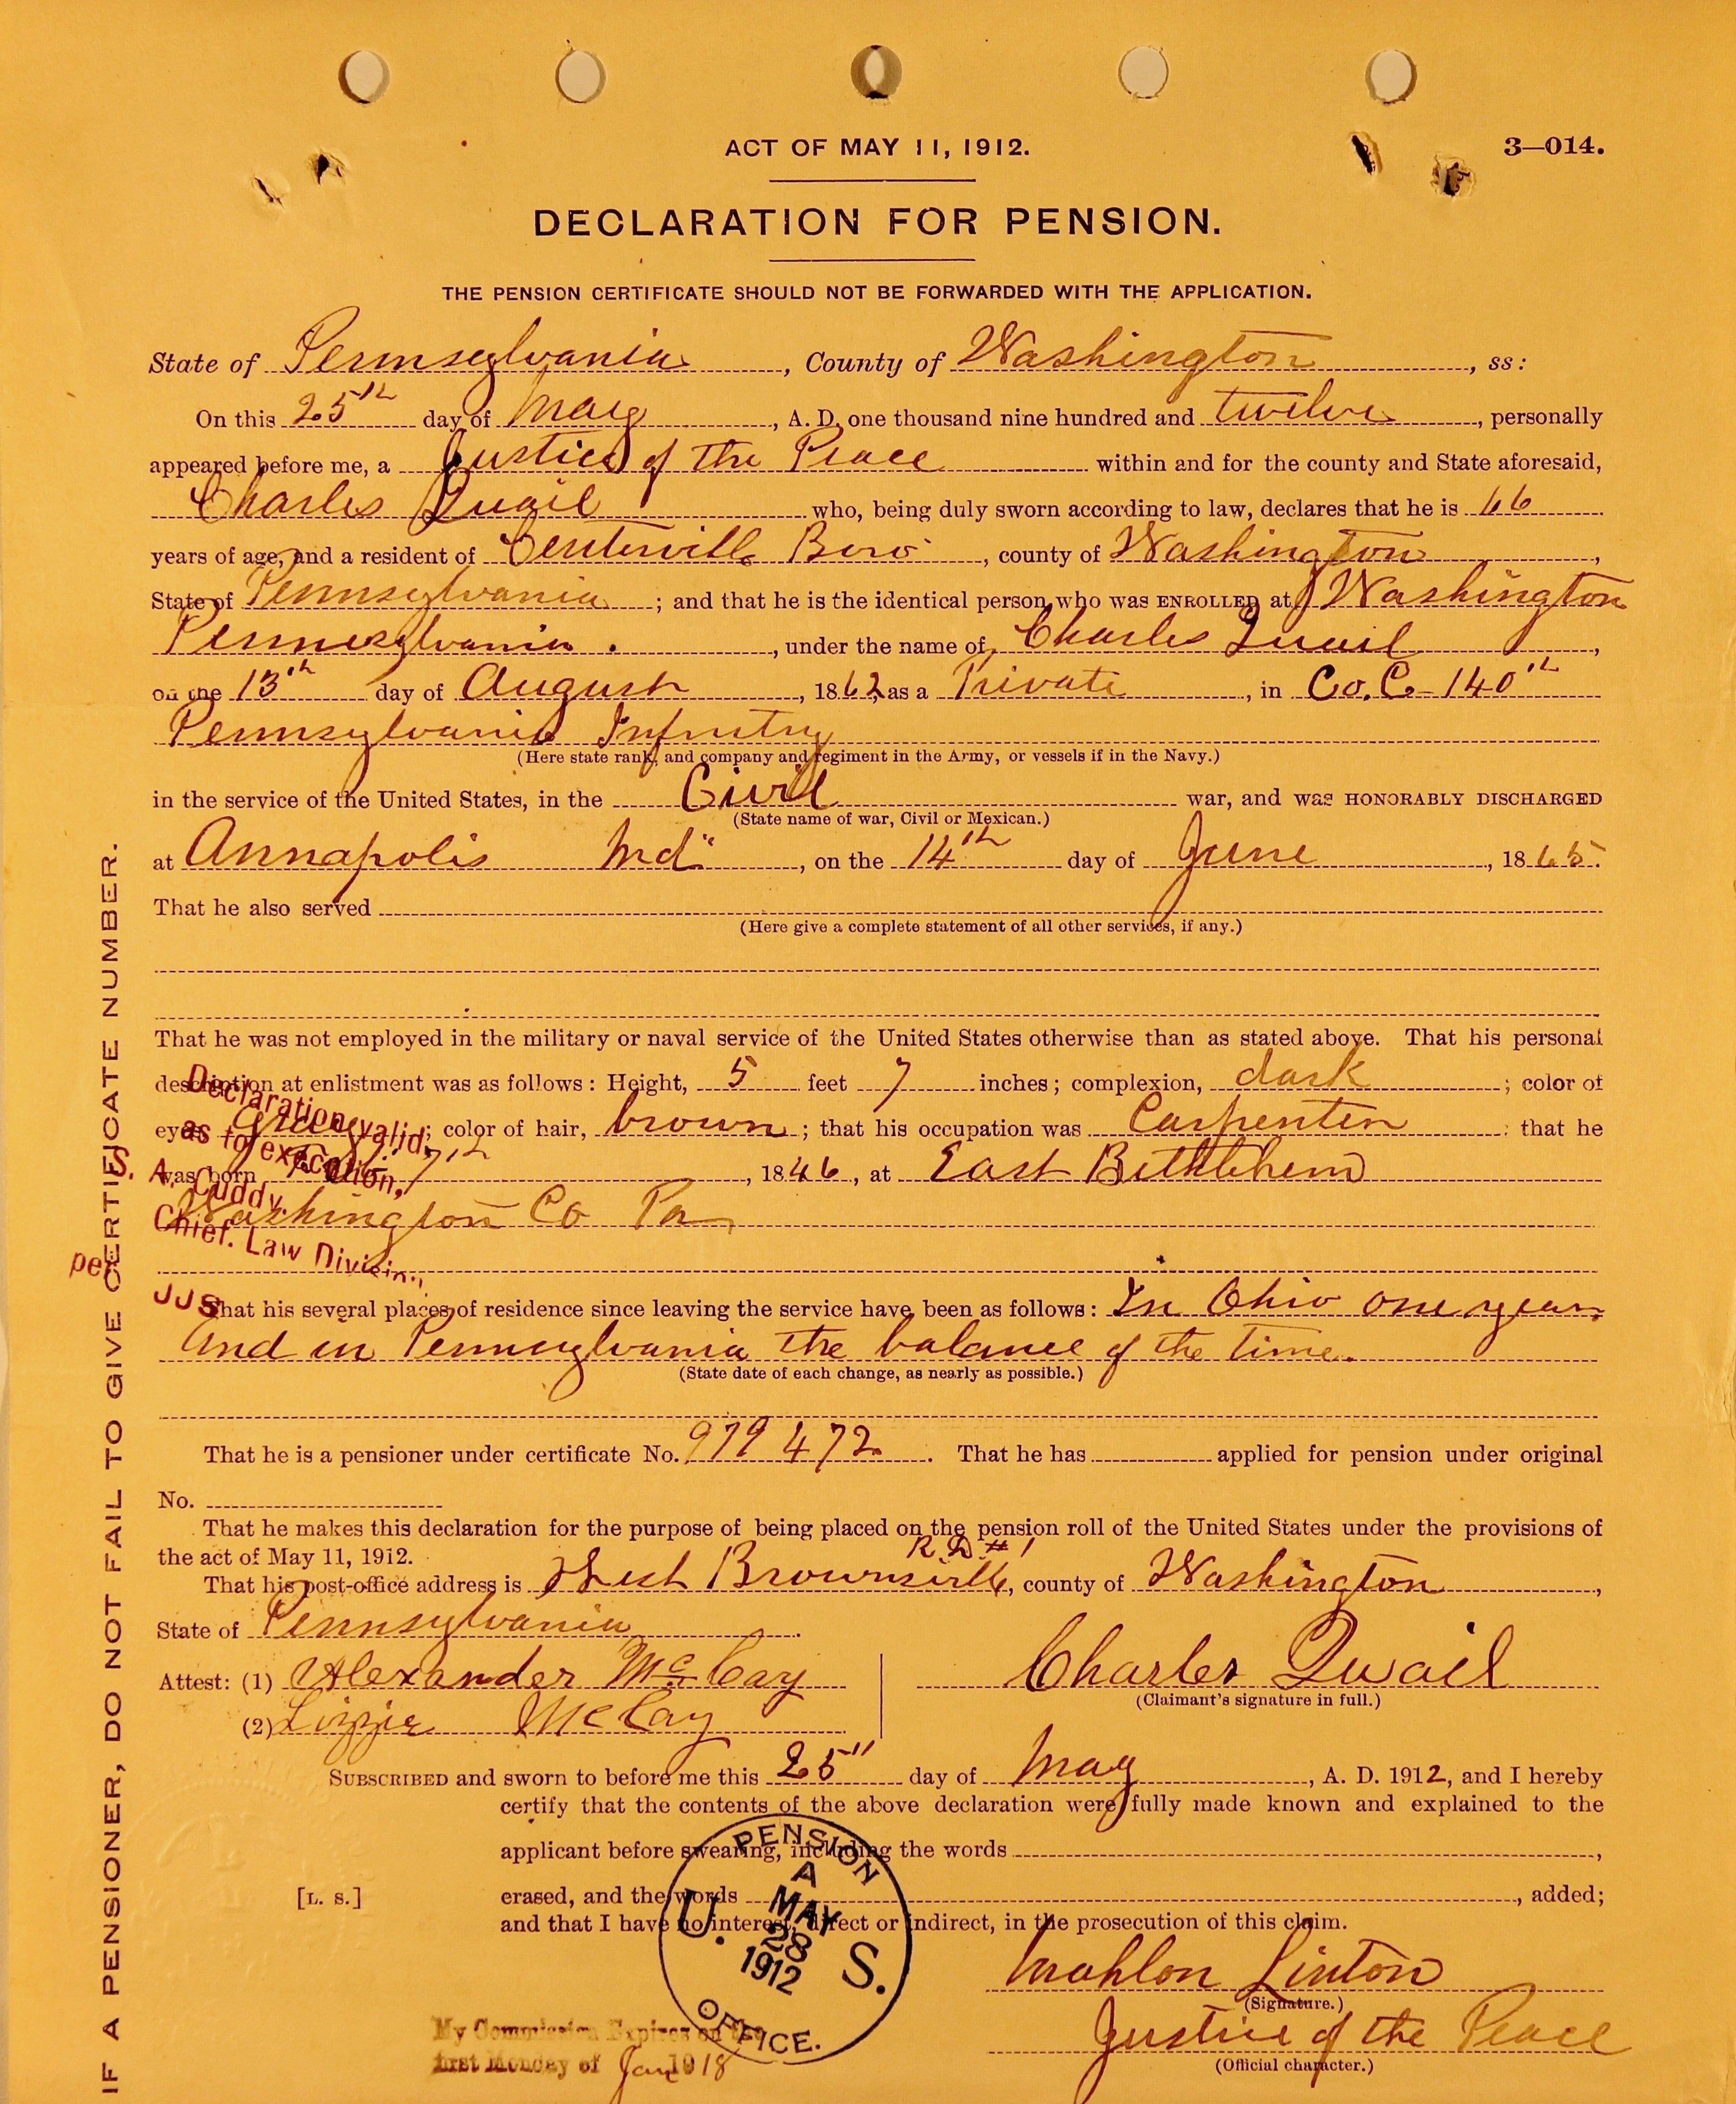 ACT OF MAY 11, 1912.
3—014.
DECLARATION FOR PENSION.
THE PENSION CERTIFICATE SHOULD NOT BE FORWARDED WITH THE APPLICATION.
State of Pennsylvania, County of Washington, ss:
On this 25th day of May, A. D. one thousand nine hundred and twelve, personally
appeared before me, a Justice of the Peace within and for the county and State aforesaid,
Charles Quail who, being duly sworn according to law, declares that he is 66
years of age, and a resident of Centerville Boro, county of Washington,
State of Pennsylvania; and that he is the identical person who was ENROLLED at Washington
Pennsylvania., under the name of Charles Quail,
on the 13th day of August, 1862, as a Private, in Co. C- 140th
Pennsylvania Infntry
(Here state rank, and company and regiment in the Army, or vessels if in the Navy.)
in the service of the United States, in the Civil war, and was HONORABLY DISCHARGED
(State name of war, Civil or Mexican.)
at Annapolis Md", on the 14th day of June, 1865.
That he also served
(Here give a complete statement of all other services, if any.)
That he was not employed in the military or naval service of the United States otherwise than as stated above. That his personal
description at enlistment was as follows: Height, 5 feet 7 inches; complexion, dark; color of
eyes, gray; color of hair, brown; that his occupation was Carpenter; that he
was born 7th, 1846, at East Bethlehem
Washington Co Pa
Declaration valid
as to execution,
S. A. Cuddy,
Chief. Law Division
per
JJS
That his several places of residence since leaving the service have been as follows: In Ohio one year
And in Pennsylvania the balance of the time.
(State date of each change, as nearly as possible.)
That he is a pensioner under certificate No. 979 472. That he has applied for pension under original
No.
That he makes this declaration for the purpose of being placed on the pension roll of the United States under the provisions of
the act of May 11, 1912.
R. D. # 1
That his post-office address is West Brownsville, county of Washington,
State of Pennsylvania.
Attest: (1) Alexander McCay
Charles Quail
(Claimant's signature in full.)
(2) Lizzie McCay
SUBSCRIBED and sworn to before me this 25" day of May, A. D. 1912, and I hereby
certify that the contents of the above declaration were fully made known and explained to the
applicant before swearing, including the words,
[L. S.]
erased, and the words, added;
and that I have no interest, direct or indirect, in the prosecution of this claim.
Mahlon Linton
(Signature.)
Justice of the Peace
(Official character.)
PENSION
A
U. S.
MAY
28
1912
OFFICE.
My Commission Expires on the
first Monday of Jan 1918
IF A PENSIONER, DO NOT FAIL TO GIVE CERTIFICATE NUMBER.